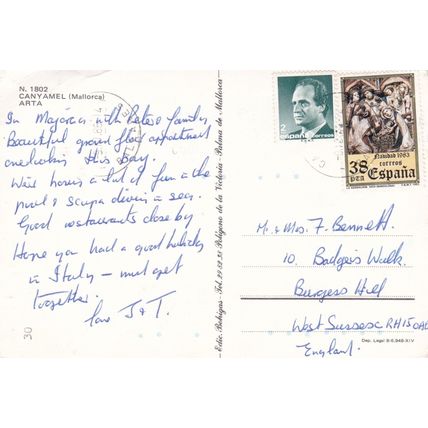 N. 1802
CANYAMEL (Mallorca)
ARTA
In Majorca with Peter's family
Beautiful ground floor apartment
overlooking this bay.
We're having a lot of fun in the
pool & scupa diving in sea.
Good restaurants close by
Hope you had a good holiday
in Italy – must get
together.
Love J & T.
30
Edic. Bohigas - Tel. 29 32 31 Polígono de la Victoria - Palma de Mallorca
2
españa correos
Navidad 1983
correos
38 PTA
España
Mr & Mrs F. Bennett
10, Badgers Walk
Burgess Hill
West Sussex RH15 0AE
England.
Dep. Legal B-6.948-XIV